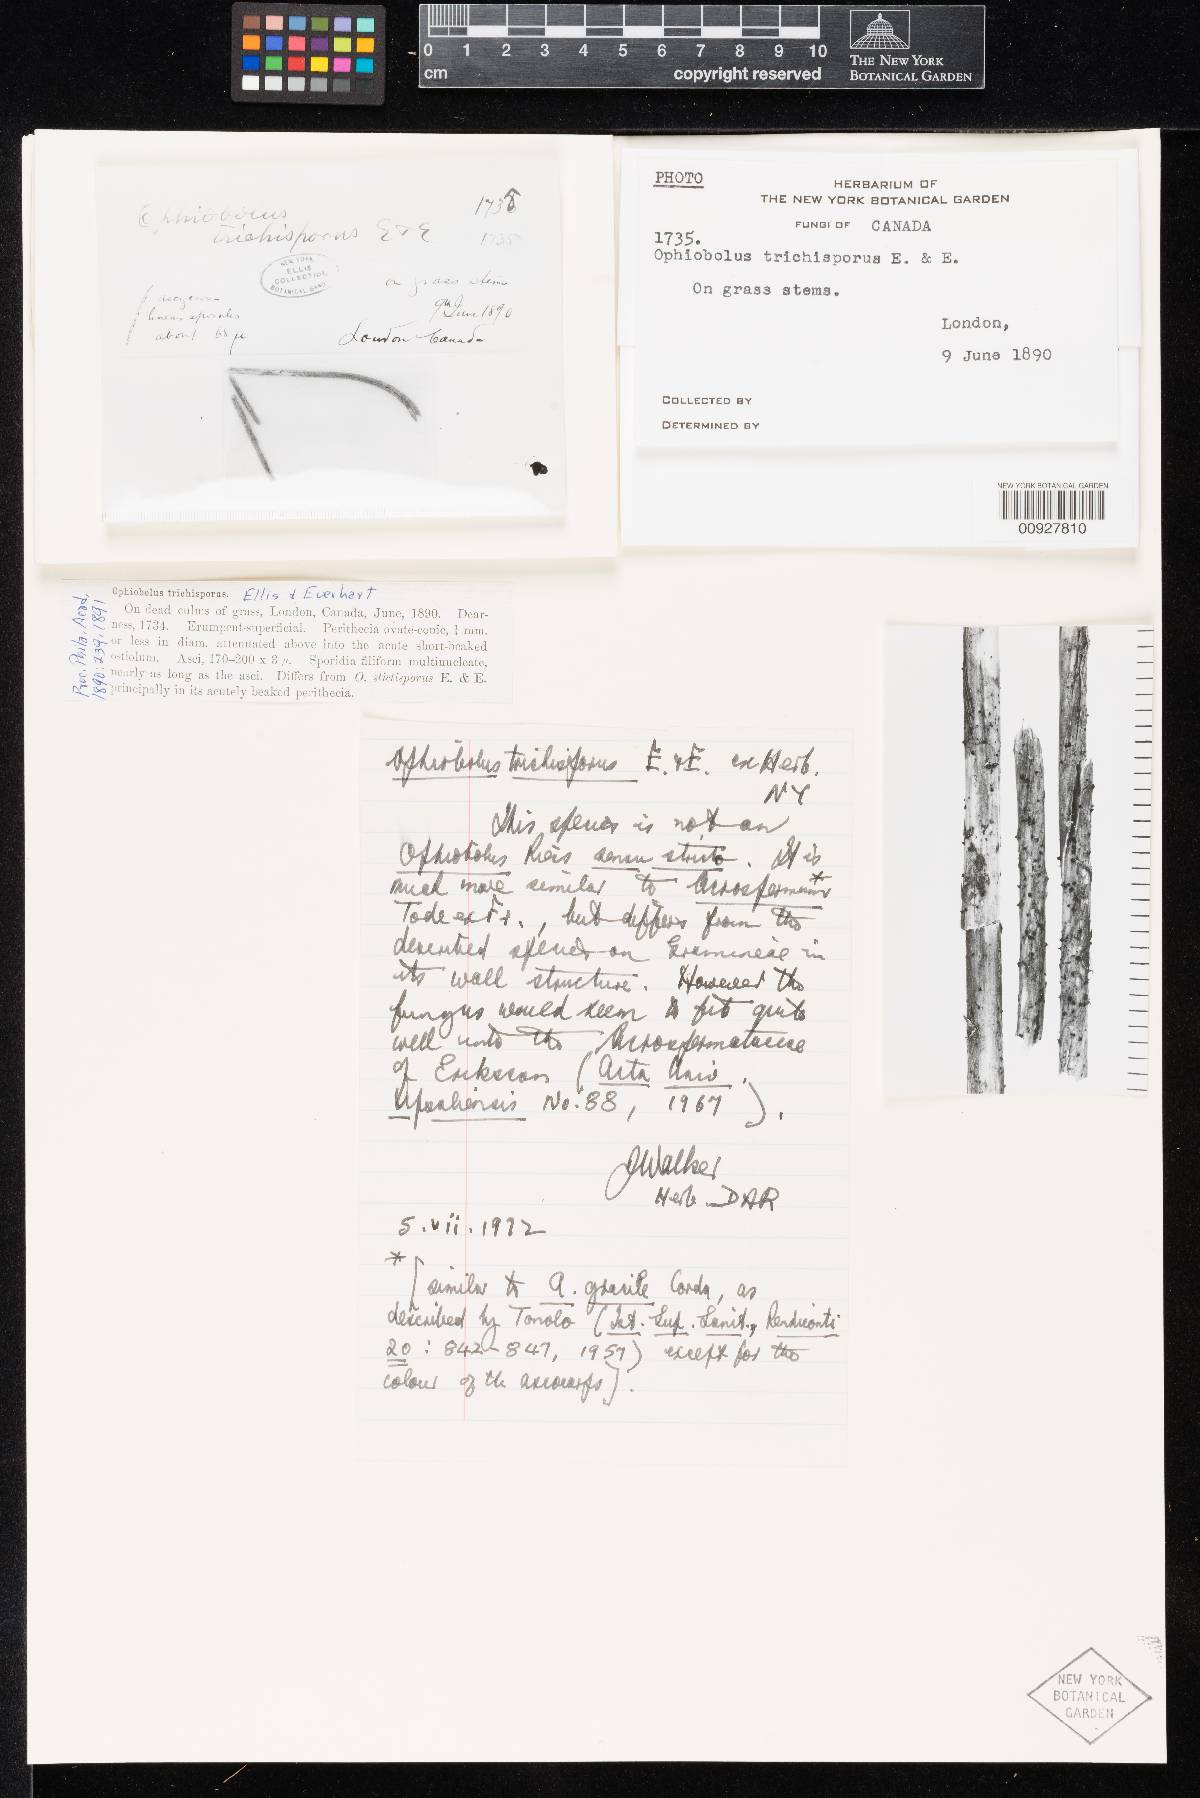 0 1 2 3 4 5 6 7 8 9 10
cm
copyright reserved
THE NEW YORK
BOTANICAL GARDEN
Ophiobolus
trichisporus E & E
1735
NEW YORK
ELLIS
COLLECTION
BOTANICAL GARD
on grass stems
9th June 1890
linear sporules
about 68 µ
London Canada
PHOTO
HERBARIUM OF
THE NEW YORK BOTANICAL GARDEN
FUNGI OF CANADA
1735.
Ophiobolus trichisporus E. & E.
On grass stems.
London,
9 June 1890
COLLECTED BY
DETERMINED BY
NEW YORK BOTANICAL GARDEN
00927810
Proc. Phila. Acad.
1890: 239, 1891
Ophiobolus trichisporus. Ellis & Everhart
On dead culms of grass, London, Canada, June, 1890. Dear-
ness, 1734. Erumpent-superficial. Perithecia ovate-conic, mm.
or less in diam. attenuated above into the acute short-beaked
ostiolum. Asci, 170–200 x 3 µ. Sporidia filiform multinucleate,
nearly as long as the asci. Differs from O. stictisporus E. & E.
principally in its acutely beaked perithecia.
Ophiobolus trichisporus E. & E. ex Herb.
NY
This species is not an
Ophiobolus Riess sensu stricto. It is
much more similar to Acrospermum*
Tode ex Fr., but differs from the
described species on Gramineae in
its wall structure. However the
fungus would seem to fit quite
well into the Acrospermataceae
of Eriksson (Acta Univ.
Upsaliensis No. 88, 1967).
J Walker
Herb. DAR
5.vii.1972
* [similar to A. gracile Corda, as
described by Tonolo (Ist. Sup. Sanit., Rendiconti
20: 842-847, 1957) except for the
colour of the ascocarps].
NEW YORK
BOTANICAL
GARDEN